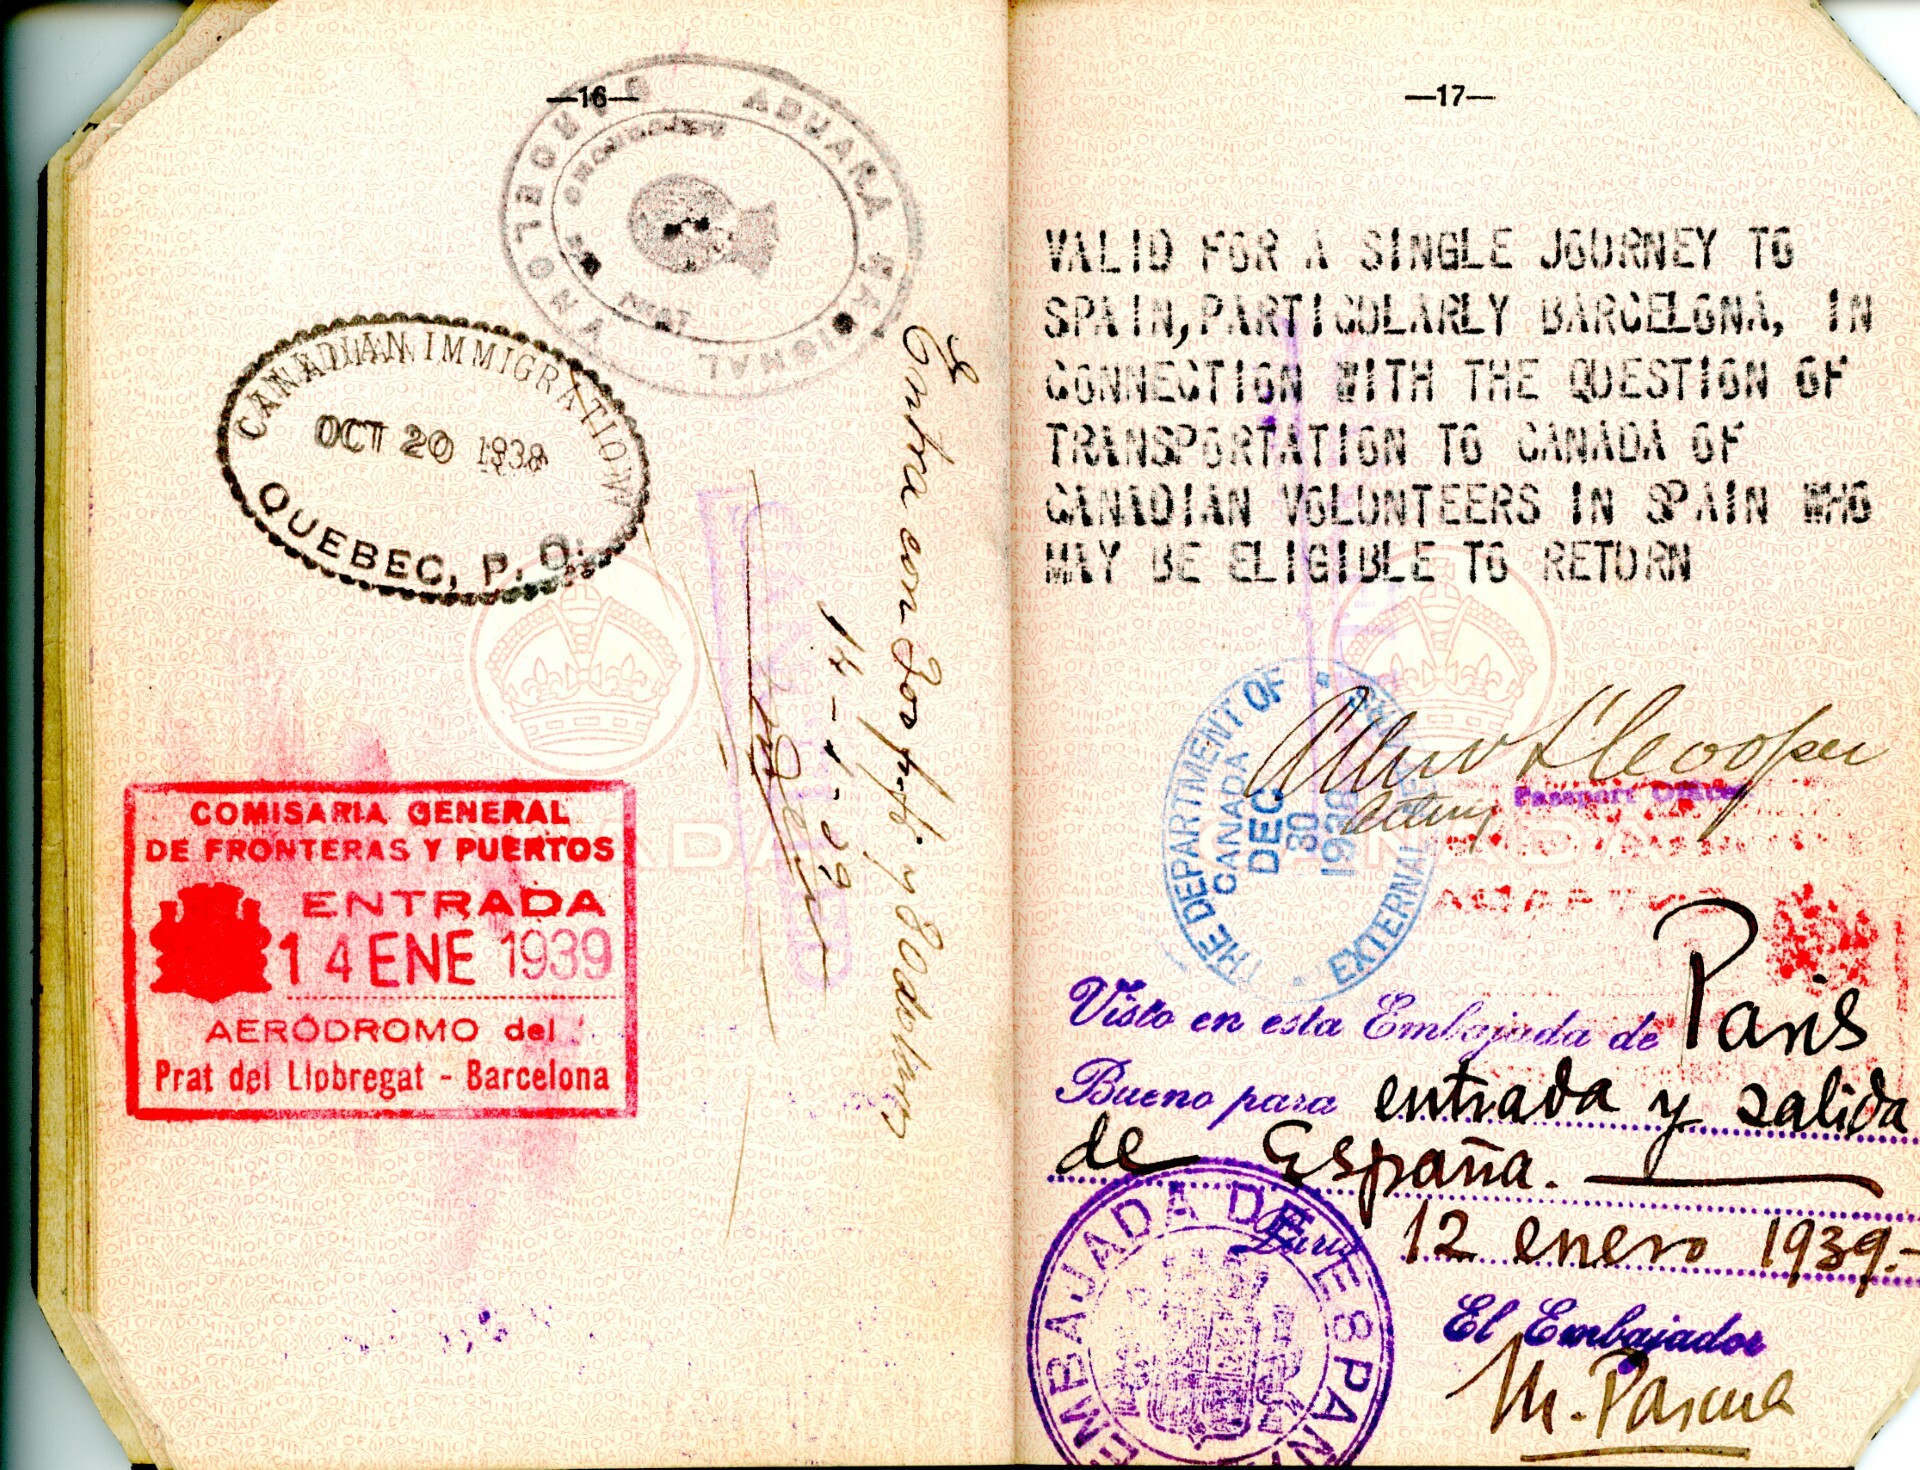 —16—
ADUANA NACIONAL
BARCELONA
AERODROMO
CANADIAN IMMIGRATION
OCT 20 1938
QUEBEC, P. Q.
Entra con dos
14-1-39
COMISARIA GENERAL
DE FRONTERAS Y PUERTOS
ENTRADA
14 ENE 1939
AERÓDROMO del
Prat del Llobregat - Barcelona
—17—
VALID FOR A SINGLE JOURNEY TO
SPAIN, PARTICULARLY BARCELONA, IN
CONNECTION WITH THE QUESTION OF
TRANSPORTATION TO CANADA OF
CANADIAN VOLUNTEERS IN SPAIN WHO
MAY BE ELIGIBLE TO RETURN
THE DEPARTMENT OF
EXTERNAL
CANADA
DEC
30
1938
Cooper
Acting Passport Officer
Visto en esta Embajada de Paris
Bueno para entrada y salida
de España.
12 enero 1939.-
EMBAJADA DE ESPAÑA
El Embajador
M. Pascua
CANADA
CANADA